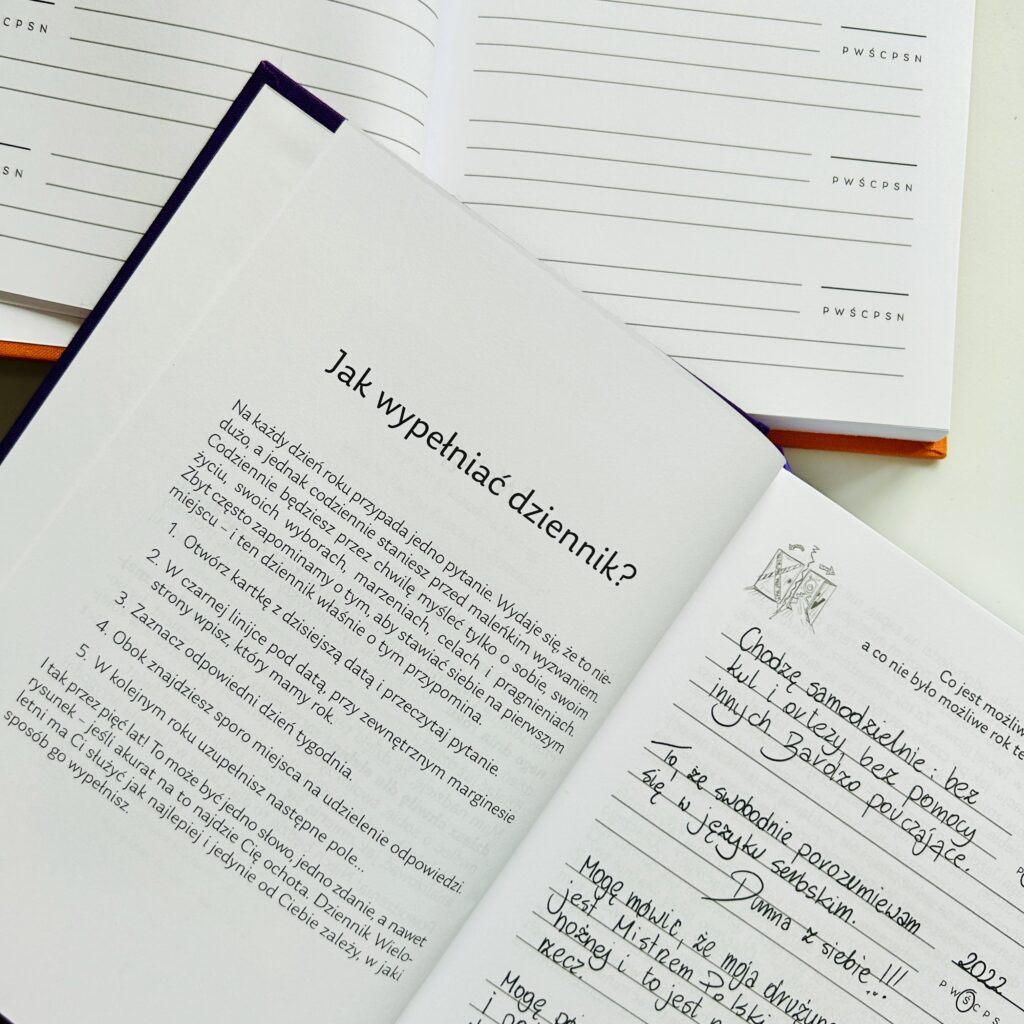 C P S N
S N
P W Ś C P S N
P W Ś C P S N
P W Ś C P S N
Jak wypełniać dziennik?
Na każdy dzień roku przypada jedno pytanie. Wydaje się, że to nie-
dużo, a jednak codziennie staniesz przed maleńkim wyzwaniem.
Codziennie będziesz przez chwilę myśleć tylko o sobie, swoim
życiu, swoich wyborach, marzeniach, celach i pragnieniach.
Zbyt często zapominamy o tym, aby stawiać siebie na pierwszym
miejscu – i ten dziennik właśnie o tym przypomina.
1. Otwórz kartkę z dzisiejszą datą i przeczytaj pytanie.
2. W czarnej linijce pod datą, przy zewnętrznym marginesie
strony wpisz, który mamy rok.
3. Zaznacz odpowiedni dzień tygodnia.
4. Obok znajdziesz sporo miejsca na udzielenie odpowiedzi.
5. W kolejnym roku uzupełnisz następne pole...
I tak przez pięć lat! To może być jedno słowo, jedno zdanie, a nawet
rysunek – jeśli akurat na to najdzie Cię ochota. Dziennik Wielo-
letni ma Ci służyć jak najlepiej i jedynie od Ciebie zależy, w jaki
sposób go wypełnisz.
Co jest możliw
a co nie było możliwe rok te
Chodzę samodzielnie: bez
kul i ortezy, bez pomocy
innych Bardzo pouczające.
To, że swobodnie porozumiewam
się w języku serbskim.
Dumna z siebie!!!
2022
P W Ś C P S
Mogę mówić, że moja drużyna
jest Mistrzem Polski
nożnej i to jest
rzecz.
Mogę
i